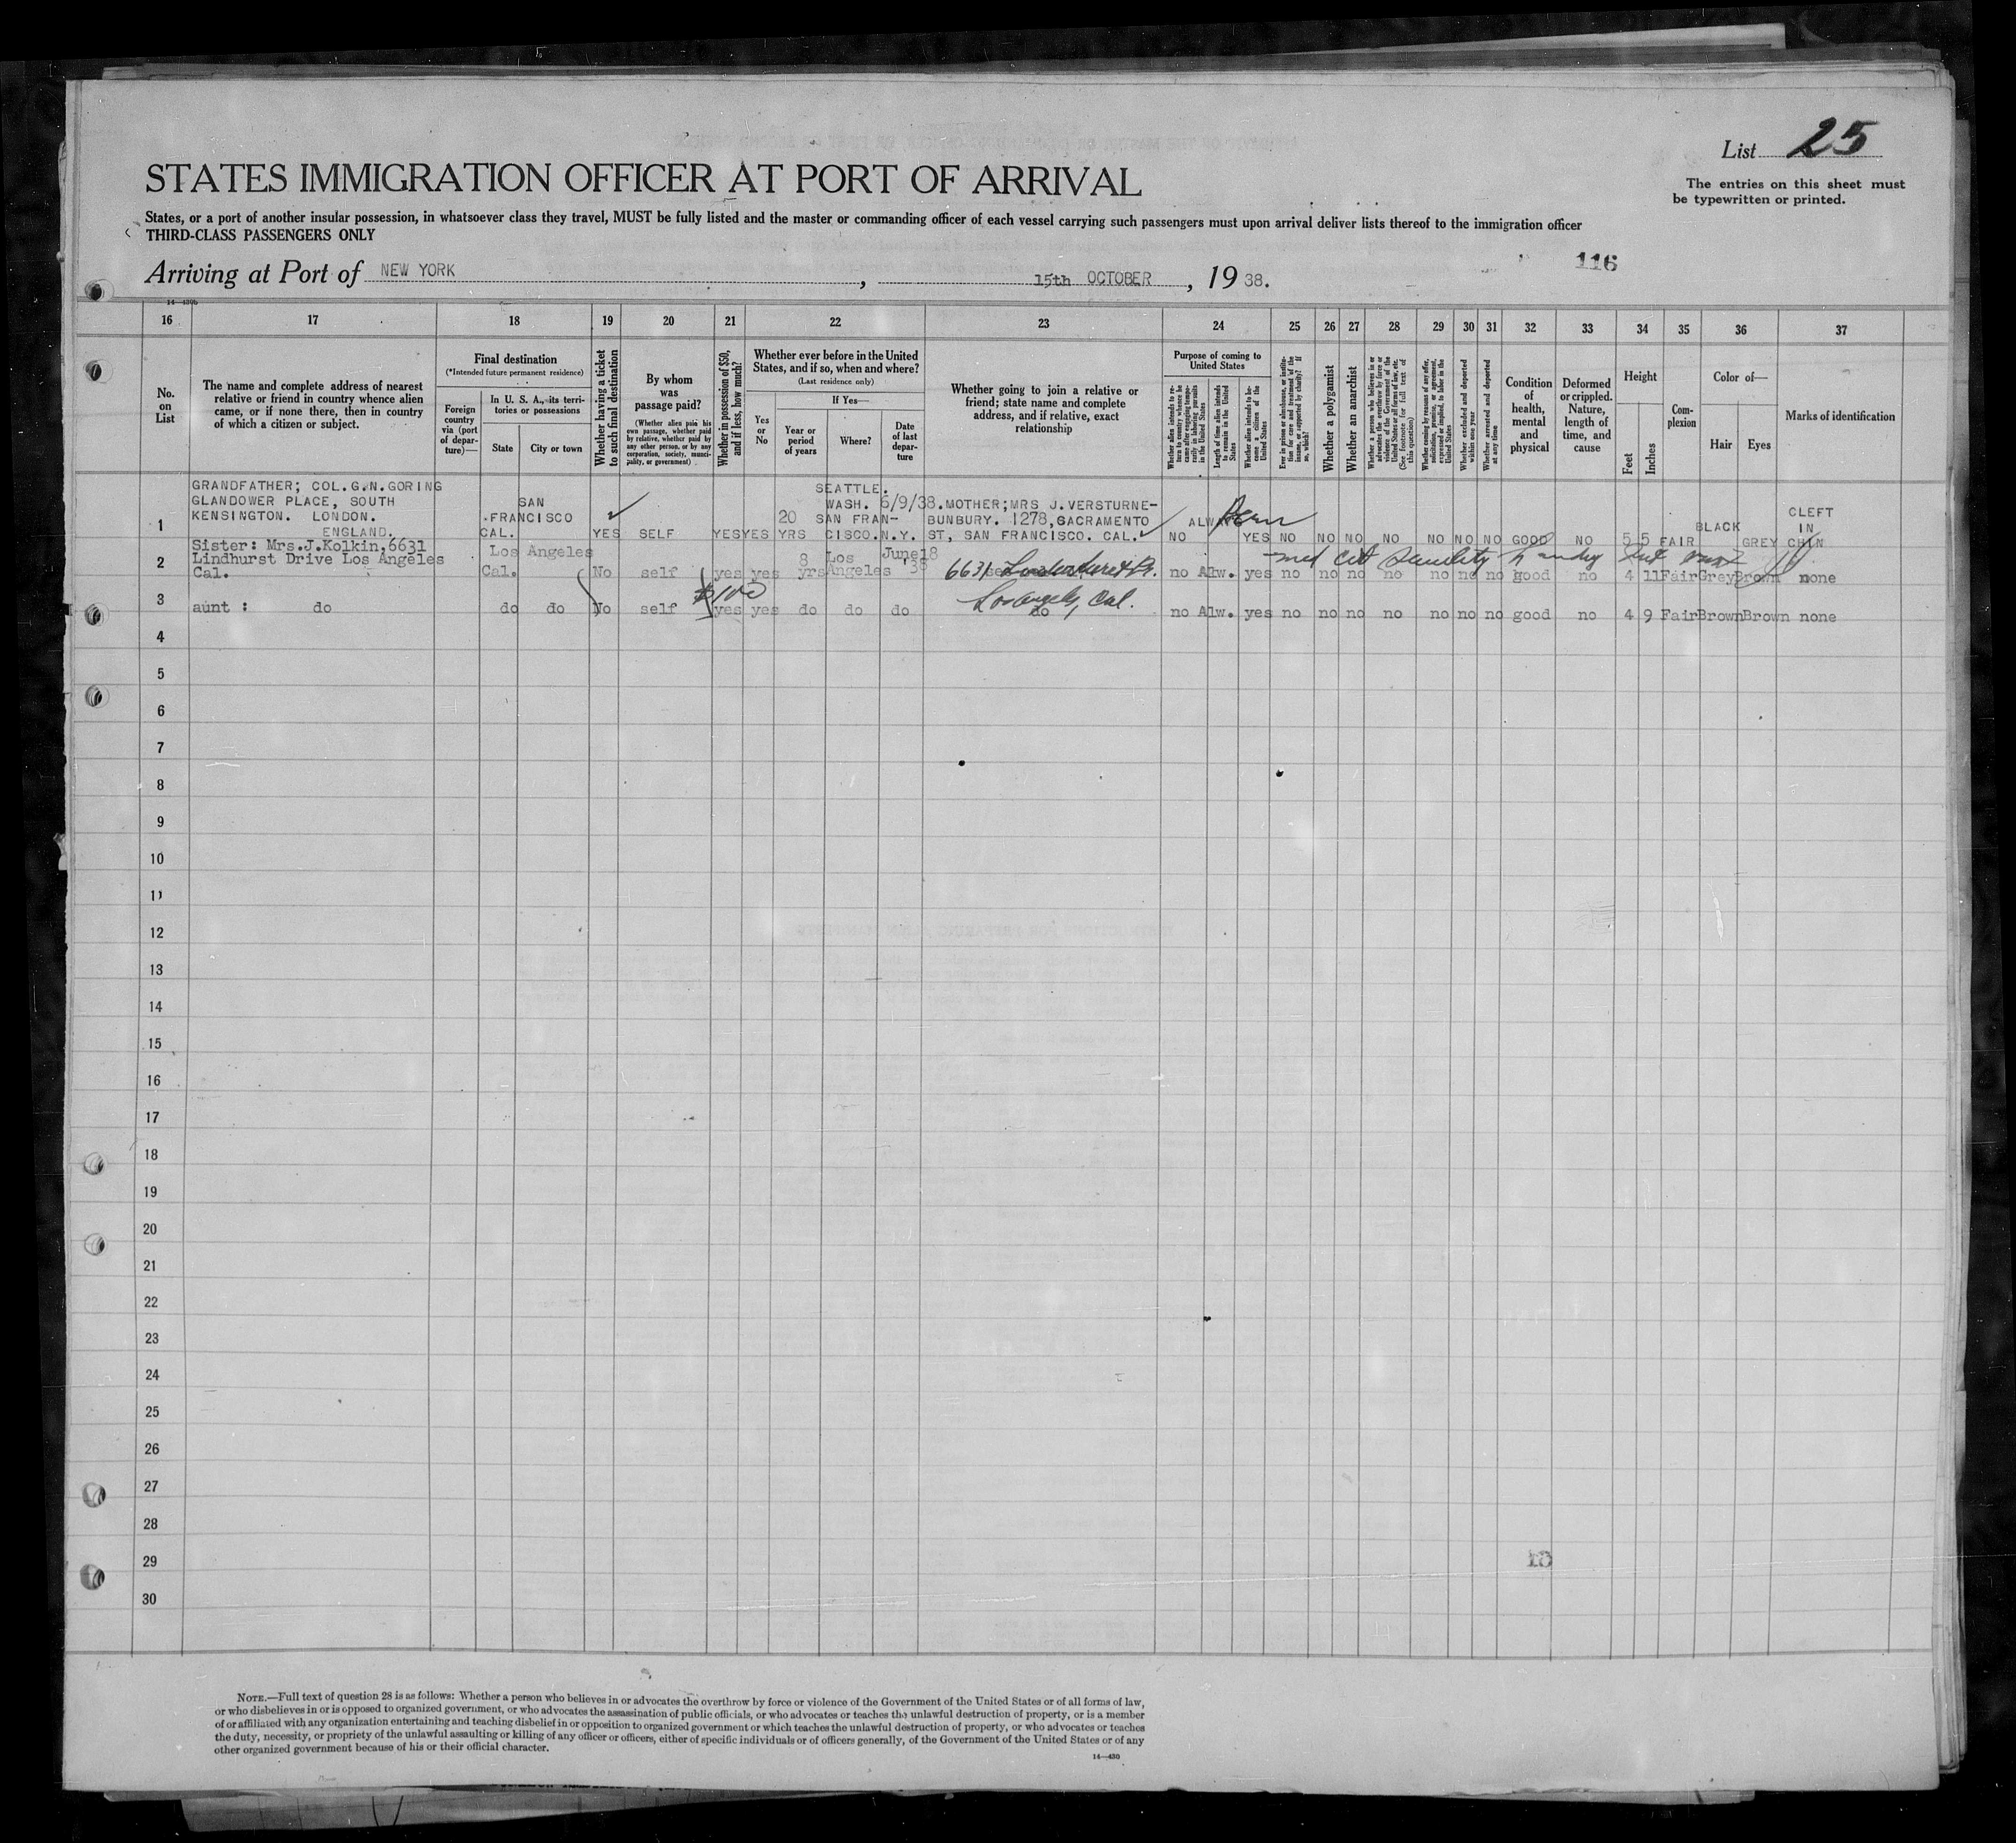 List 25
The entries on this sheet must
be typewritten or printed.
STATES IMMIGRATION OFFICER AT PORT OF ARRIVAL
States, or a port of another insular possession, in whatsoever class they travel, MUST be fully listed and the master or commanding officer of each vessel carrying such passengers must upon arrival deliver lists thereof to the immigration officer
THIRD-CLASS PASSENGERS ONLY
116
Arriving at Port of NEW YORK, 15th OCTOBER, 19 38.
16 17 18 19 20 21 22 23 24 25 26 27 28 29 30 31 32 33 34 35 36 37
No.
on
List
The name and complete address of nearest
relative or friend in country whence alien
came, or if none there, then in country
of which a citizen or subject.
Final destination
(*Intended future permanent residence)
Foreign
country
via (port
of depar-
ture)—
In U. S. A., its terri-
tories or possessions
State
City or town
Whether having a ticket
to such final destination
By whom
was
passage paid?
(Whether alien paid his
own passage, whether paid
by relative, whether paid by
any other person, or by any
corporation, society, munici-
pality, or government)
Whether in possession of $50,
and if less, how much?
Whether ever before in the United
States, and if so, when and where?
(Last residence only)
Yes
or
No
If Yes—
Year or
period
of years
Where?
Date
of last
depar-
ture
Whether going to join a relative or
friend; state name and complete
address, and if relative, exact
relationship
Purpose of coming to
United States
Whether alien intends to re-
turn to country whence he
came after engaging tempo-
rarily in laboring pursuits
in the United States
Length of time alien intends
to remain in the United
States
Whether alien intends to be-
come a citizen of the
United States
Ever in prison or almshouse, or institu-
tion for care and treatment of the
insane, or supported by charity? If
so, which?
Whether a polygamist
Whether an anarchist
Whether a person who believes in or
advocates the overthrow by force or
violence of the Government of the
United States or all forms of law, etc.
(See footnote for full text of
this question)
Whether coming by reasons of any offer,
solicitation, promise, or agreement,
expressed or implied, to labor in the
United States
Whether excluded and deported
within one year
Whether arrested and deported
at any time
Condition
of
health,
mental
and
physical
Deformed
or crippled.
Nature,
length of
time, and
cause
Height
Feet
Inches
Com-
plexion
Color of—
Hair
Eyes
Marks of identification
1
GRANDFATHER; COL.G.N.GORING
GLANDOWER PLACE, SOUTH
KENSINGTON. LONDON.
ENGLAND.
SAN
FRANCISCO
CAL.
YES SELF YES YES
20
YRS
SEATTLE.
WASH. 6/9/38.
SAN FRAN-
CISCO. N.Y.
MOTHER;MRS J.VERSTURNE-
BUNBURY. 1278, SACRAMENTO
ST, SAN FRANCISCO. CAL.
NO YES NO NO NO NO NO NO NO GOOD NO 5 5 FAIR BLACK GREY
CLEFT
IN
CHIN
2
Sister: Mrs.J.Kolkin,6631
Lindhurst Drive Los Angeles
Cal.
Los Angeles
Cal.
No self yes yes
8
yrs
Los
Angeles
June 18
'38
6631
Los Angeles, Cal.
no Alw. yes no no no no no no no good no 4 11 Fair Grey Brown none
$100
3
aunt : do do do No self yes yes do do do do no Alw. yes no no no no no no no good no 4 9 Fair Brown Brown none
4
5
6
7
8
9
10
11
12
13
14
15
16
17
18
19
20
21
22
23
24
25
26
27
28
29
30
NOTE.—Full text of question 28 is as follows: Whether a person who believes in or advocates the overthrow by force or violence of the Government of the United States or of all forms of law,
or who disbelieves in or is opposed to organized government, or who advocates the assassination of public officials, or who advocates or teaches the unlawful destruction of property, or is a member
of or affiliated with any organization entertaining and teaching disbelief in or opposition to organized government or which teaches the unlawful destruction of property, or who advocates or teaches
the duty, necessity, or propriety of the unlawful assaulting or killing of any officer or officers, either of specific individuals or of officers generally, of the Government of the United States or of any
other organized government because of his or their official character.
14—430